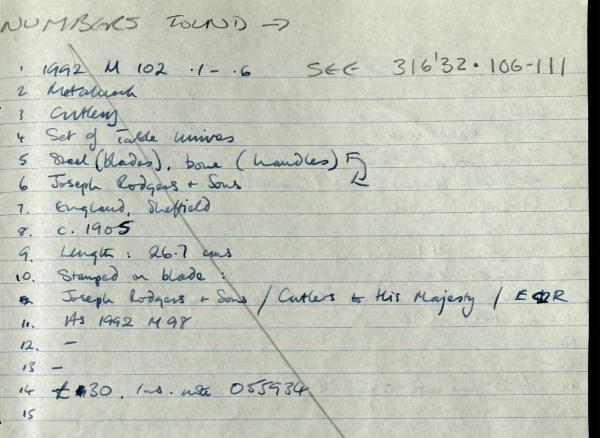 NUMBERS FOUND →
1 1992 M 102 .1 - .6 SEE 316'32.106-111
2 Metalwork
3 Cutlery
4 Set of Table knives
5 Steel (blades), bone (handles)
6 Joseph Rodgers + Sons
7. England, Sheffield
8. c. 1905
9. Length: 26.7 cms
10. Stamped on blade:
Joseph Rodgers + Sons / Cutlers to His Majesty / E R
11. As 1992 M 98
12. -
13 -
14 £30. Ins. note 055934
15